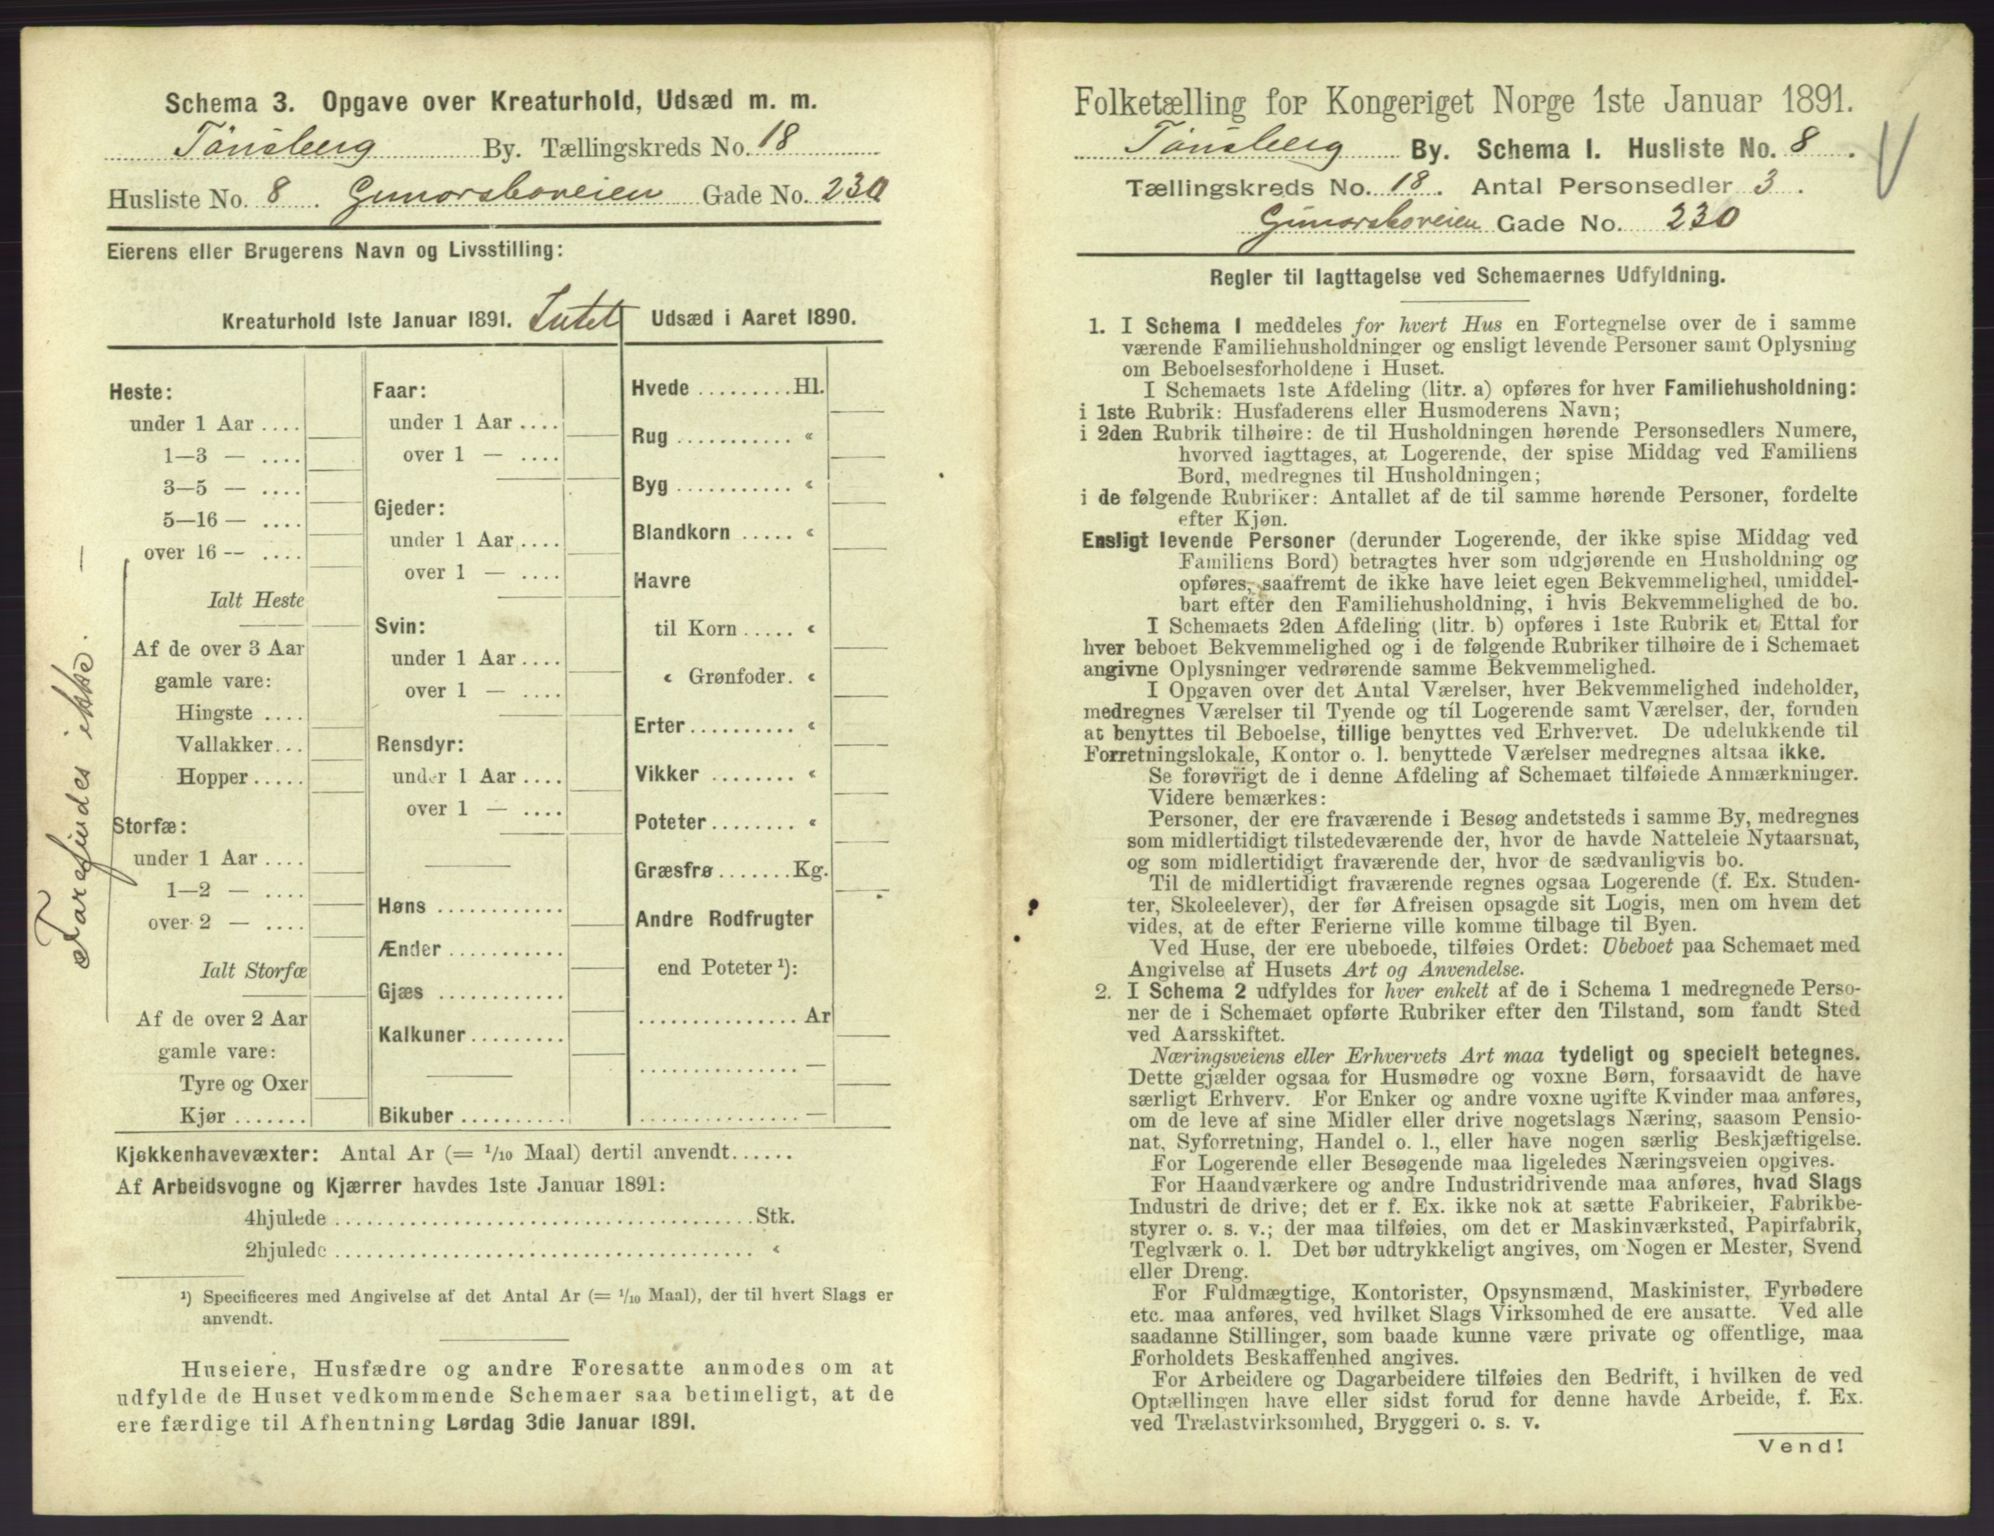 Schema 3. Opgave over Kreaturhold, Udsæd m. m.
Tönsberg By. Tællingskreds No. 18
Husliste No. 8. Gunorsboveien Gade No. 230
Eierens eller Brugerens Navn og Livsstilling:
Kreaturhold 1ste Januar 1891. Intet
Heste:
under 1 Aar ....
1—3 — ....
3—5 — ....
5—16 — ....
over 16 -- ....
Ialt Heste
Af de over 3 Aar
gamle vare:
Hingste ....
Vallakker...
Hopper .....
Storfæ:
under 1 Aar ....
1—2 — ....
over 2 — ....
Ialt Storfæ
Af de over 2 Aar
gamle vare:
Tyre og Oxer
Kjør .......
Forefindes ikke. —
Faar:
under 1 Aar ....
over 1 — ....
Gjeder:
under 1 Aar ....
over 1 — ....
Svin:
under 1 Aar ....
over 1 — ....
Rensdyr:
under 1 Aar ....
over 1 — ....
Høns ............
Ænder ...........
Gjæs ............
Kalkuner .........
Bikuber ..........
Udsæd i Aaret 1890.
Hvede ......... Hl.
Rug ........... «
Byg ........... «
Blandkorn ..... «
Havre
til Korn ..... «
« Grønfoder. «
Erter .......... «
Vikker ........ «
Poteter ........ «
Græsfrø ....... Kg.
Andre Rodfrugter
end Poteter ¹):
............... Ar
............... —
............... —
Kjøkkenhavevæxter: Antal Ar (= 1/10 Maal) dertil anvendt......
Af Arbeidsvogne og Kjærrer havdes 1ste Januar 1891:
4hjulede ........................................ Stk.
2hjulede ........................................ «
¹) Specificeres med Angivelse af det Antal Ar (= 1/10 Maal), der til hvert Slags er
anvendt.
Huseiere, Husfædre og andre Foresatte anmodes om at
udfylde de Huset vedkommende Schemaer saa betimeligt, at de
ere færdige til Afhentning Lørdag 3die Januar 1891.
Folketælling for Kongeriget Norge 1ste Januar 1891.
Tönsberg By. Schema I. Husliste No. 8.
Tællingskreds No. 18. Antal Personsedler 3.
Gunorsboveien Gade No. 230
Regler til Iagttagelse ved Schemaernes Udfyldning.
1. I Schema I meddeles for hvert Hus en Fortegnelse over de i samme
værende Familiehusholdninger og ensligt levende Personer samt Oplysning
om Beboelsesforholdene i Huset.
I Schemaets 1ste Afdeling (litr. a) opføres for hver Familiehusholdning:
i 1ste Rubrik: Husfaderens eller Husmoderens Navn;
i 2den Rubrik tilhøire: de til Husholdningen hørende Personsedlers Numere,
hvorved iagttages, at Logerende, der spise Middag ved Familiens
Bord, medregnes til Husholdningen;
i de følgende Rubriker: Antallet af de til samme hørende Personer, fordelte
efter Kjøn.
Ensligt levende Personer (derunder Logerende, der ikke spise Middag ved
Familiens Bord) betragtes hver som udgjørende en Husholdning og
opføres, saafremt de ikke have leiet egen Bekvemmelighed, umiddel-
bart efter den Familiehusholdning, i hvis Bekvemmelighed de bo.
I Schemaets 2den Afdeling (litr. b) opføres i 1ste Rubrik et Ettal for
hver beboet Bekvemmelighed og i de følgende Rubriker tilhøire de i Schemaet
angivne Oplysninger vedrørende samme Bekvemmelighed.
I Opgaven over det Antal Værelser, hver Bekvemmelighed indeholder,
medregnes Værelser til Tyende og til Logerende samt Værelser, der, foruden
at benyttes til Beboelse, tillige benyttes ved Erhvervet. De udelukkende til
Forretningslokale, Kontor o. l. benyttede Værelser medregnes altsaa ikke.
Se forøvrigt de i denne Afdeling af Schemaet tilføiede Anmærkninger.
Videre bemærkes:
Personer, der ere fraværende i Besøg andetsteds i samme By, medregnes
som midlertidigt tilstedeværende der, hvor de havde Natteleie Nytaarsnat,
og som midlertidigt fraværende der, hvor de sædvanligvis bo.
Til de midlertidigt fraværende regnes ogsaa Logerende (f. Ex. Studen-
ter, Skoleelever), der før Afreisen opsagde sit Logis, men om hvem det
vides, at de efter Ferierne ville komme tilbage til Byen.
Ved Huse, der ere ubeboede, tilføies Ordet: Ubeboet paa Schemaet med
Angivelse af Husets Art og Anvendelse.
2. I Schema 2 udfyldes for hver enkelt af de i Schema 1 medregnede Perso-
ner de i Schemaet opførte Rubriker efter den Tilstand, som fandt Sted
ved Aarsskiftet.
Næringsveiens eller Erhvervets Art maa tydeligt og specielt betegnes.
Dette gjælder ogsaa for Husmødre og voxne Børn, forsaavidt de have
særligt Erhverv. For Enker og andre voxne ugifte Kvinder maa anføres,
om de leve af sine Midler eller drive nogetslags Næring, saasom Pensio-
nat, Syforretning, Handel o. l., eller have nogen særlig Beskjæftigelse.
For Logerende eller Besøgende maa ligeledes Næringsveien opgives.
For Haandværkere og andre Industridrivende maa anføres, hvad Slags
Industri de drive; det er f. Ex. ikke nok at sætte Fabrikeier, Fabrikbe-
styrer o. s. v.; der maa tilføies, om det er Maskinværksted, Papirfabrik,
Teglværk o. l. Det bør udtrykkeligt angives, om Nogen er Mester, Svend
eller Dreng.
For Fuldmægtige, Kontorister, Opsynsmænd, Maskinister, Fyrbødere
etc. maa anføres, ved hvilket Slags Virksomhed de ere ansatte. Ved alle
saadanne Stillinger, som baade kunne være private og offentlige, maa
Forholdets Beskaffenhed angives.
For Arbeidere og Dagarbeidere tilføies den Bedrift, i hvilken de ved
Optællingen have eller sidst forud for denne havde Arbeide, f. Ex.
ved Trælastvirksomhed, Bryggeri o. s. v.
Vend!